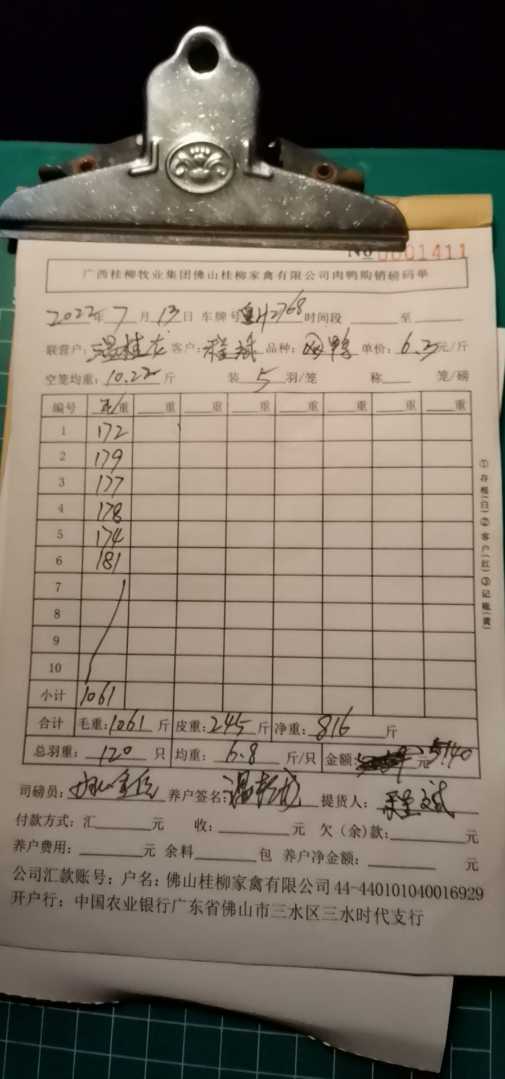 No 0001411
广西桂柳牧业集团佛山桂柳家禽有限公司肉鸭购销磅码单
2022年 7 月 13 日 车牌号 H2768 时间段 至
联营户: 客户: 程斌 品种: 肉鸭 单价: 6.3元/斤
空笼均重: 10.22 斤 装 5 羽/笼 称 笼/磅
编号 毛重 重 重 重 重 重 重 重
1 172
2 179
3 177
4 178
5 174
6 181
7
8
9
10
小计 1061
合计 毛重: 1061 斤 皮重: 245 斤 净重: 816 斤
总羽重: 120 只 均重: 6.8 斤/只 金额: 元 5140
司磅员: 养户签名: 提货人: 程斌
付款方式: 汇 元 收: 元 欠(余)款: 元
养户费用: 元 余料 包 养户净金额: 元
公司汇款账号: 户名: 佛山桂柳家禽有限公司 44-440101040016929
开户行: 中国农业银行广东省佛山市三水区三水时代支行
①存根(白)②客户(红)③记账(黄)